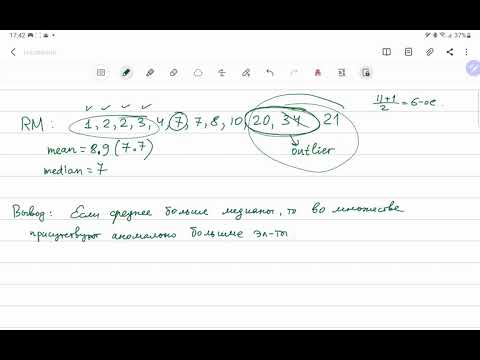 17:42
37%
RM: 1, 2, 2, 3, 4, 7, 7, 8, 10, 20, 34 21
11+1/2 = 6-ое.
mean = 8.9 (7.7)
outlier
median = 7
Вывод: Если среднее больше медианы, то во множестве
присутствуют аномально большие эл-ты